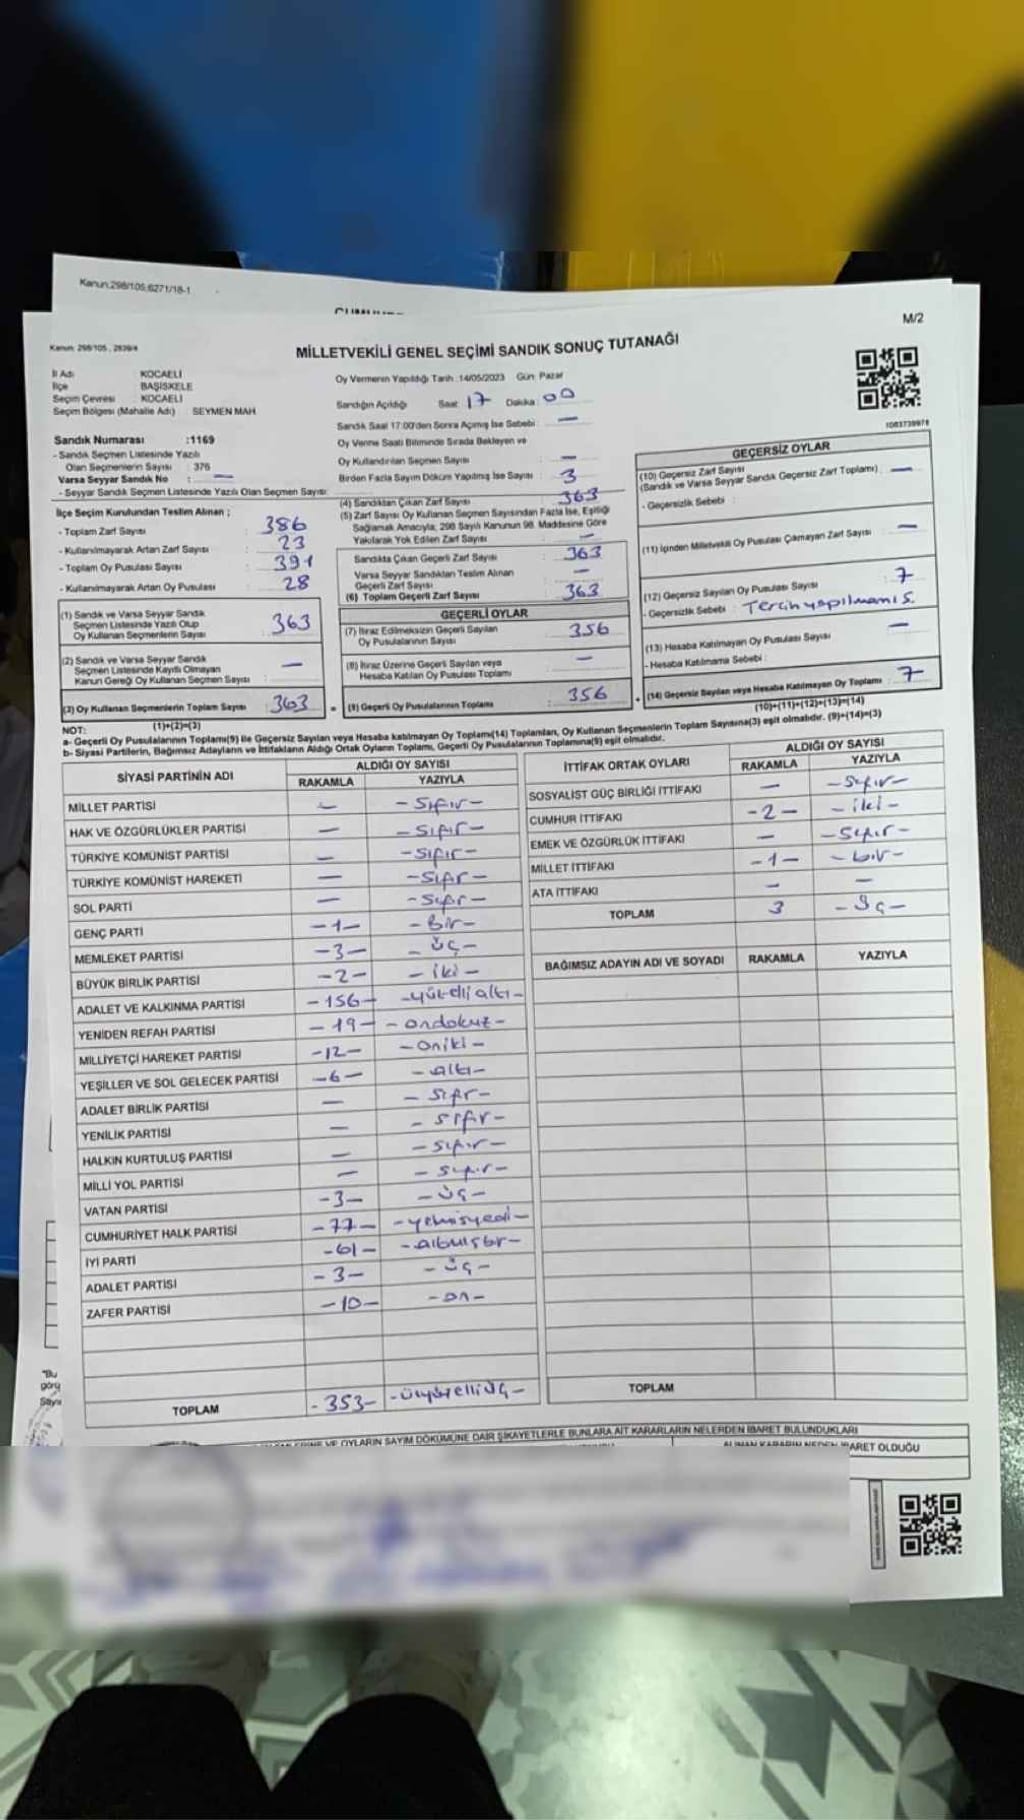 Kanun:298/105,6271/18-1
M/2
Kanun: 298/105 , 2839/4
MİLLETVEKİLİ GENEL SEÇİMİ SANDIK SONUÇ TUTANAĞI
İl Adı KOCAELİ
İlçe BAŞİSKELE
Seçim Çevresi : KOCAELİ
Seçim Bölgesi (Mahalle Adı) : SEYMEN MAH.
Sandık Numarası :1169
- Sandık Seçmen Listesinde Yazılı
Olan Seçmenlerin Sayısı : 376
Varsa Seyyar Sandık No : —
- Seyyar Sandık Seçmen Listesinde Yazılı Olan Seçmen Sayısı:
Oy Vermenin Yapıldığı Tarih :14/05/2023 Gün: Pazar
Sandığın Açıldığı Saat: 17 Dakika: 00
Sandık Saat 17:00'den Sonra Açılmış İse Sebebi : —
Oy Verme Saati Bitiminde Sırada Bekleyen ve
Oy Kullandırılan Seçmen Sayısı : —
Birden Fazla Sayım Döküm Yapılmış İse Sayısı : 3
1083739978
İlçe Seçim Kurulundan Teslim Alınan ;
- Toplam Zarf Sayısı : 386
- Kullanılmayarak Artan Zarf Sayısı : 23
- Toplam Oy Pusulası Sayısı : 391
- Kullanılmayarak Artan Oy Pusulası : 28
(1) Sandık ve Varsa Seyyar Sandık
Seçmen Listesinde Yazılı Olup
Oy Kullanan Seçmenlerin Sayısı : 363
(2) Sandık ve Varsa Seyyar Sandık
Seçmen Listesinde Kayıtlı Olmayan
Kanun Gereği Oy Kullanan Seçmen Sayısı : —
(3) Oy Kullanan Seçmenlerin Toplam Sayısı : 363
(1)+(2)=(3)
(4) Sandıktan Çıkan Zarf Sayısı : 363
(5) Zarf Sayısı Oy Kullanan Seçmen Sayısından Fazla İse, Eşitliği
Sağlamak Amacıyla; 298 Sayılı Kanunun 98. Maddesine Göre
Yakılarak Yok Edilen Zarf Sayısı : —
Sandıkta Çıkan Geçerli Zarf Sayısı : 363
Varsa Seyyar Sandıktan Teslim Alınan
Geçerli Zarf Sayısı : —
(6) Toplam Geçerli Zarf Sayısı : 363
GEÇERLİ OYLAR
(7) İtiraz Edilmeksizin Geçerli Sayılan
Oy Pusulalarının Sayısı : 356
(8) İtiraz Üzerine Geçerli Sayılan veya
Hesaba Katılan Oy Pusulası Toplamı : —
(9) Geçerli Oy Pusulalarının Toplamı : 356
GEÇERSİZ OYLAR
(10) Geçersiz Zarf Sayısı
(Sandık ve Varsa Seyyar Sandık Geçersiz Zarf Toplamı) : —
- Geçersizlik Sebebi :
(11) İçinden Milletvekili Oy Pusulası Çıkmayan Zarf Sayısı : —
(12) Geçersiz Sayılan Oy Pusulası Sayısı : 7
- Geçersizlik Sebebi : Tercih yapılmamış.
(13) Hesaba Katılmayan Oy Pusulası Sayısı : —
- Hesaba Katılmama Sebebi :
(14) Geçersiz Sayılan veya Hesaba Katılmayan Oy Toplamı : 7
(10)+(11)+(12)+(13)=(14)
NOT:
a- Geçerli Oy Pusulalarının Toplamı(9) ile Geçersiz Sayılan veya Hesaba katılmayan Oy Toplamı(14) Toplamları, Oy Kullanan Seçmenlerin Toplam Sayısına(3) eşit olmalıdır. (9)+(14)=(3)
b- Siyasi Partilerin, Bağımsız Adayların ve İttifakların Aldığı Ortak Oyların Toplamı, Geçerli Oy Pusulalarının Toplamına(9) eşit olmalıdır.
SİYASİ PARTİNİN ADI ALDIĞI OY SAYISI
RAKAMLA YAZIYLA
MİLLET PARTİSİ — -Sıfır-
HAK VE ÖZGÜRLÜKLER PARTİSİ — -Sıfır-
TÜRKİYE KOMÜNİST PARTİSİ — -Sıfır-
TÜRKİYE KOMÜNİST HAREKETİ — -Sıfır-
SOL PARTİ — -Sıfır-
GENÇ PARTİ -1- -Bir-
MEMLEKET PARTİSİ -3- -Üç-
BÜYÜK BİRLİK PARTİSİ -2- -iki-
ADALET VE KALKINMA PARTİSİ -156- -yüzelli altı-
YENİDEN REFAH PARTİSİ -19- -ondokuz-
MİLLİYETÇİ HAREKET PARTİSİ -12- -oniki-
YEŞİLLER VE SOL GELECEK PARTİSİ -6- -altı-
ADALET BİRLİK PARTİSİ — -sıfır-
YENİLİK PARTİSİ — -sıfır-
HALKIN KURTULUŞ PARTİSİ — -sıfır-
MİLLİ YOL PARTİSİ — -sıfır-
VATAN PARTİSİ -3- -üç-
CUMHURİYET HALK PARTİSİ -77- -yetmişyedi-
İYİ PARTİ -61- -altmışbir-
ADALET PARTİSİ -3- -üç-
ZAFER PARTİSİ -10- -on-
TOPLAM -353- -üçyüzelliüç-
İTTİFAK ORTAK OYLARI ALDIĞI OY SAYISI
RAKAMLA YAZIYLA
SOSYALİST GÜÇ BİRLİĞİ İTTİFAKI — -sıfır-
CUMHUR İTTİFAKI -2- -iki-
EMEK VE ÖZGÜRLÜK İTTİFAKI — -sıfır-
MİLLET İTTİFAKI -1- -bir-
ATA İTTİFAKI — —
TOPLAM 3 -üç-
BAĞIMSIZ ADAYIN ADI VE SOYADI RAKAMLA YAZIYLA
TOPLAM
"Bu
görü
Sayı
VE OYLARIN SAYIM DÖKÜMÜNE DAİR ŞİKAYETLERLE BUNLARA AİT KARARLARIN NELERDEN İBARET BULUNDUKLARI
ALINAN KARARIN NEDEN İBARET OLDUĞU